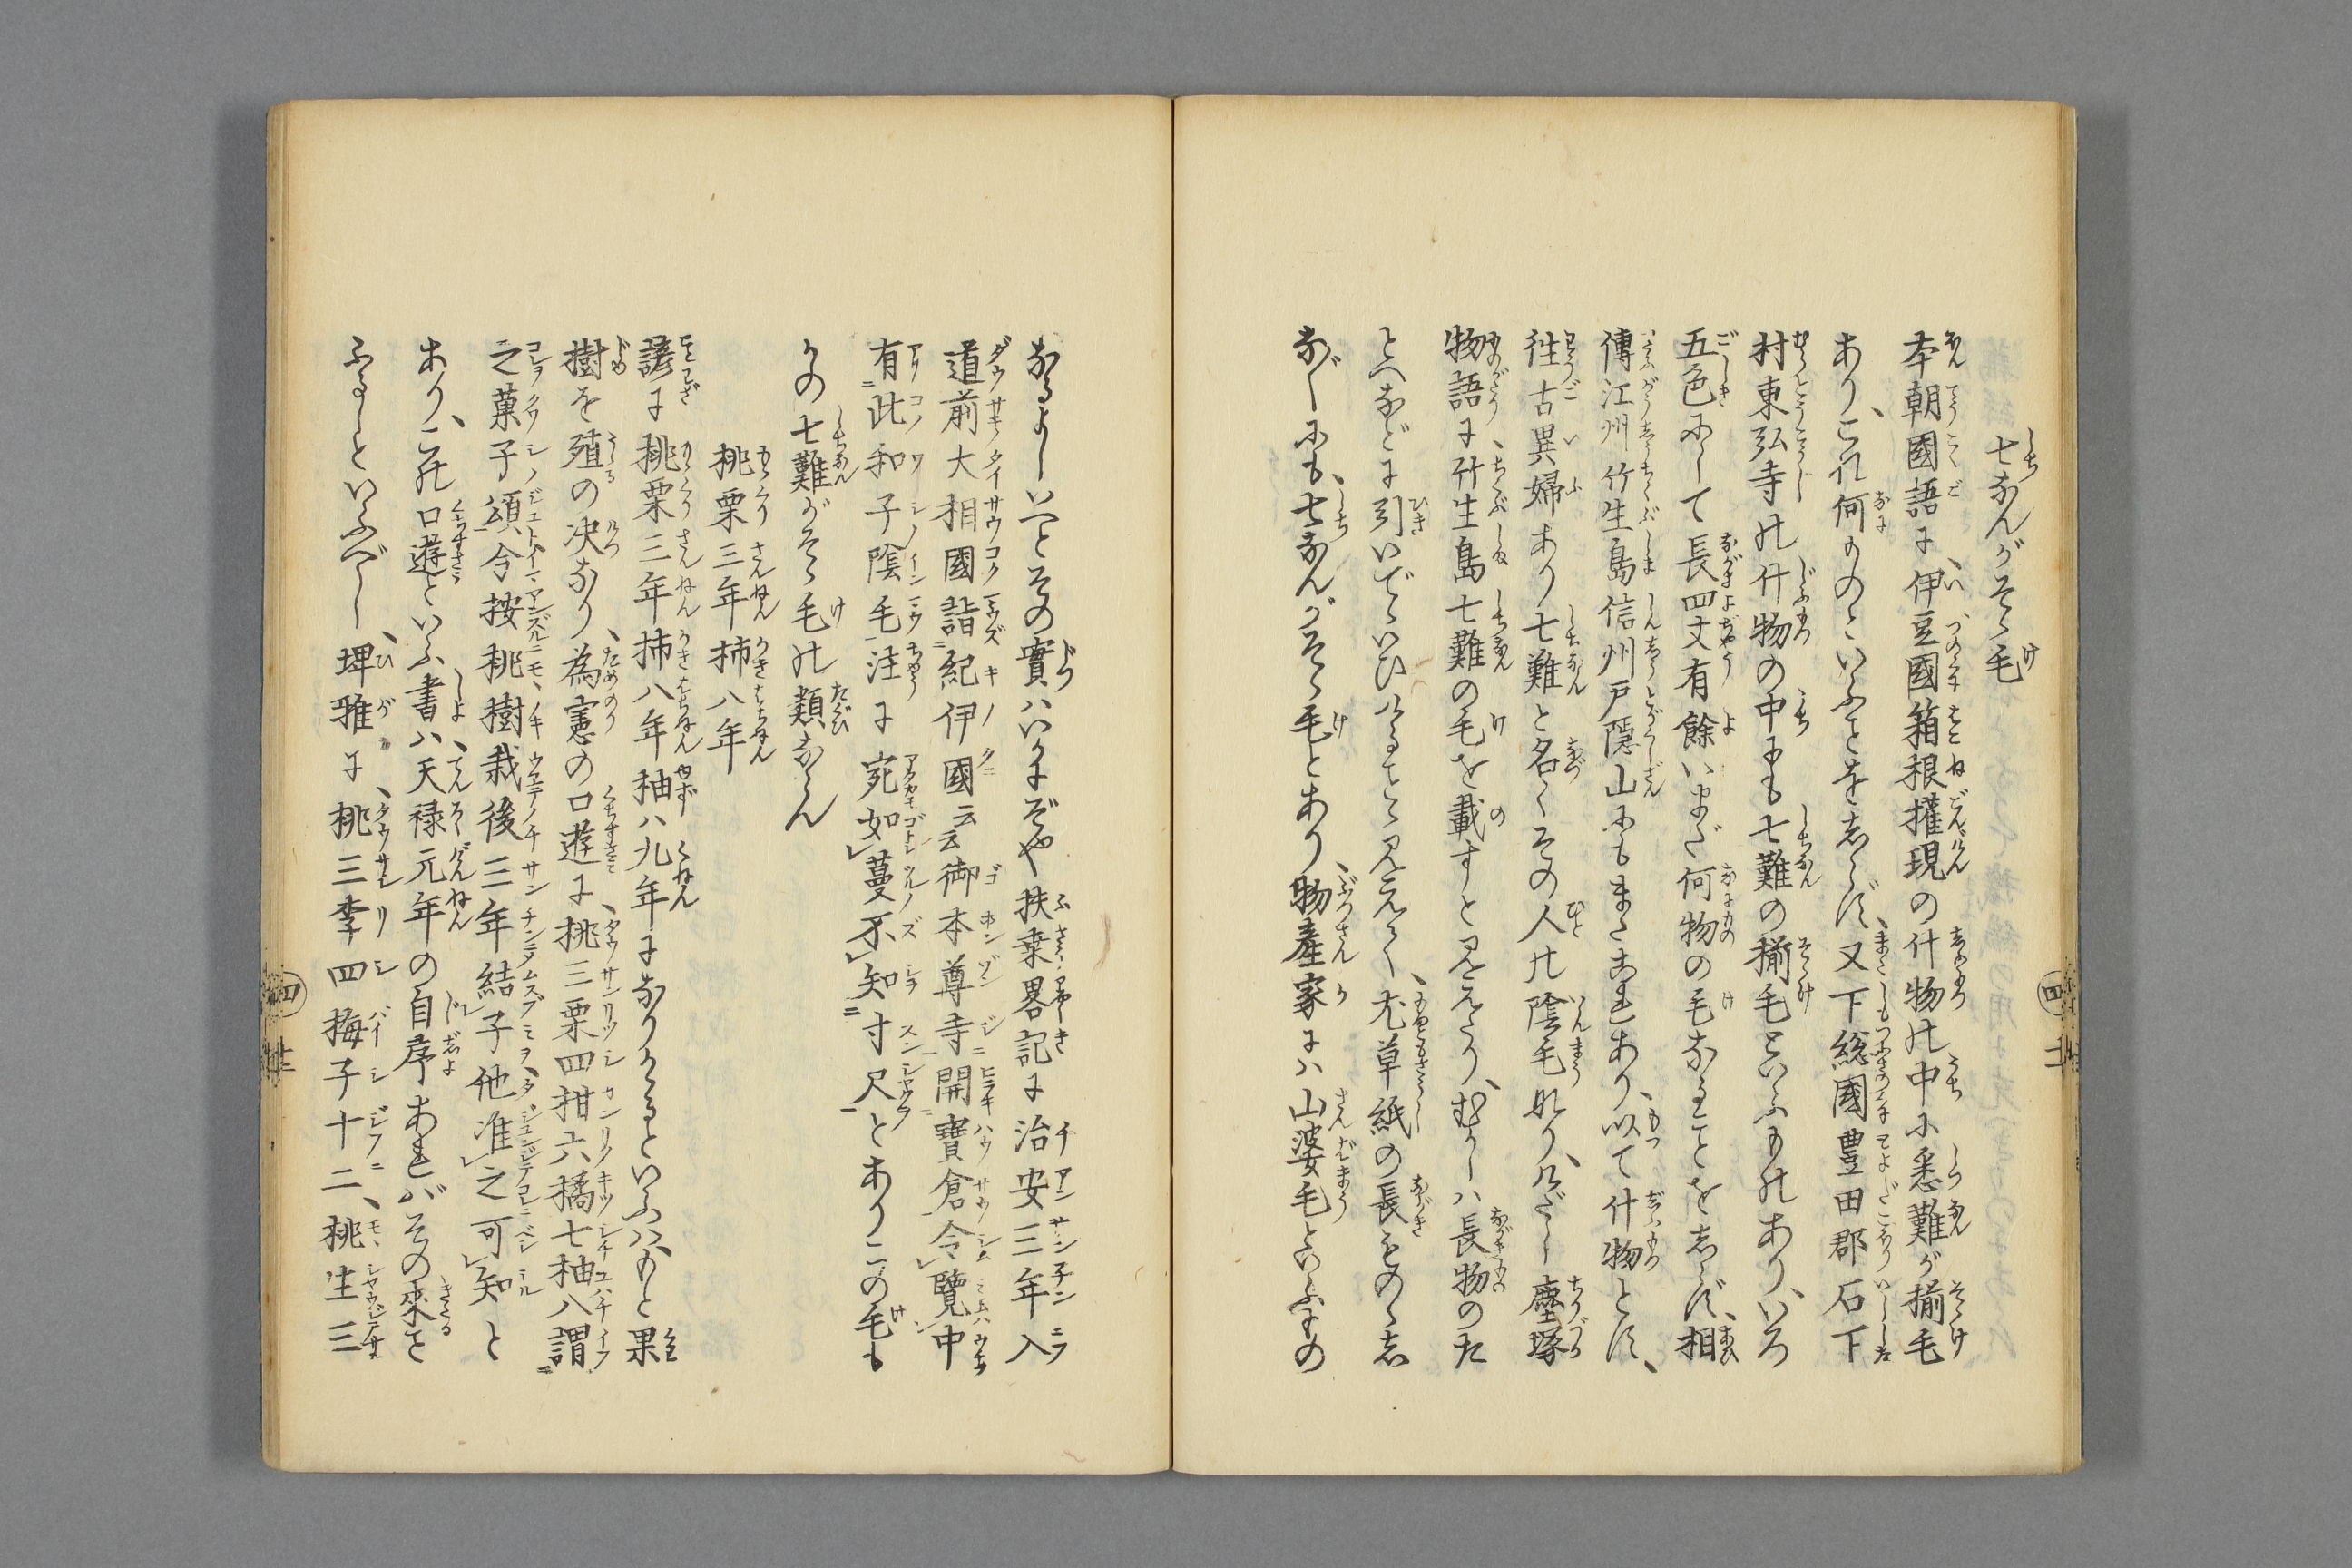 七なんがそゝ毛
本朝國語に、伊豆國箱根権現の什物の中に悉難が揃毛
あり、これ何ものといふことをしらず、又下総國豊田郡石下
村東弘寺の什物の中にも七難の揃毛といふものあり、いろ
五色にして長四丈有餘いまだ何物の毛なることをしらず、相
傳江州竹生島信州戸隠山にもまたこれあり、以て什物とす、
徃古異婦あり七難と名くその人の陰毛なり、けだし塵塚
物語に、竹生島七難の毛を載すと見えたり、むかしハ長物のた
とへなどに引いでゝいひけること見えて、尤草紙の長きものゝし
なじなにも、七なんがそゝ毛とあり、物産家にハ山婆毛といふもの
なるよしいへとその實ハいかにぞや扶桒畧記に治安三年入
道前大相國詣紀伊國云云御本尊寺開寳倉令覽中
有此和子陰毛注に宛如蔓不知寸尺とありこの毛も
かの七難がそゝ毛の類ならん
桃栗三年柿八年
諺に桃栗三年柿八年柚ハ九年になりかゝるといふハ、もと果
樹を殖の决なり、為憲の口遊に、桃三栗四柑六橘七柚八謂
之菓子頌今按桃樹栽後三年結子他准之可知と
あり、この口遊といふ書ハ、天禄元年の自序あれバその來こと
ふるしといふべし、埤雅に、桃三李四梅子十二、桃生三